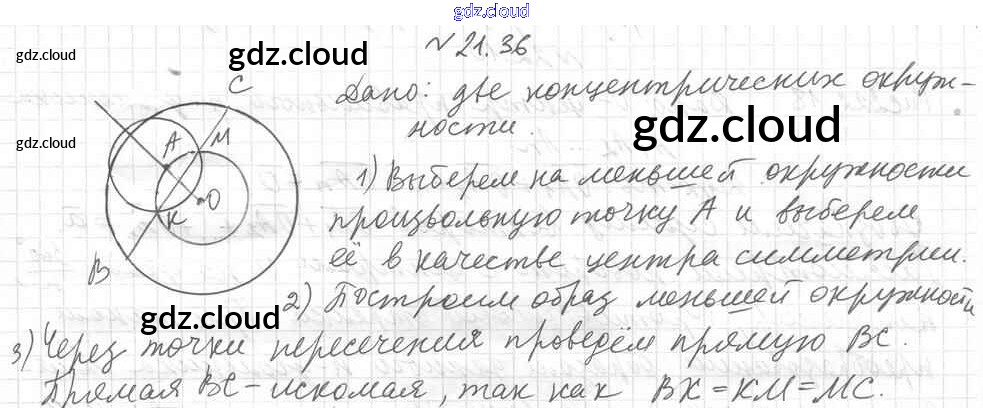 gdz.cloud
№ 21.36
gdz.cloud
gdz.cloud
Дано: две концентрических окруж-
ности.
gdz.cloud
gdz.cloud
C
A M
O
K
B
1) Выберем на меньшей окружности
произвольную точку A и выберем
её в качестве центра симметрии.
2) Построим образ меньшей окружности
gdz.cloud
gdz.cloud
3) Через точки пересечения проведём прямую BC.
Прямая BC – искомая, так как BK = KM = MC.